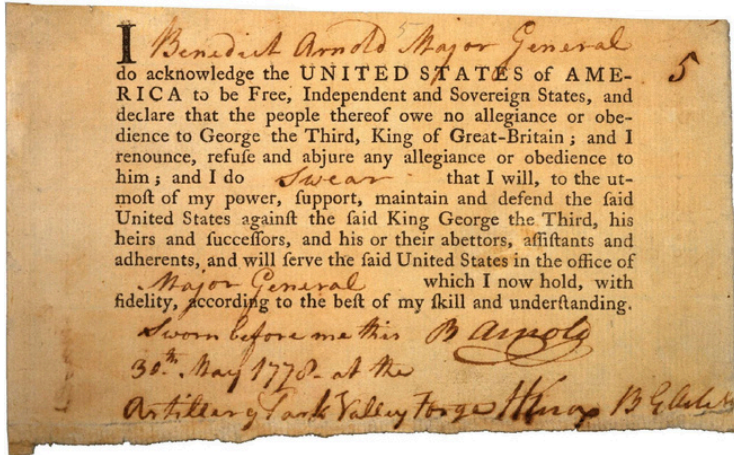 I Benedict Arnold Major General
5
do acknowledge the UNITED STATES of AME-
RICA to be Free, Independent and Sovereign States, and
declare that the people thereof owe no allegiance or obe-
dience to George the Third, King of Great-Britain ; and I
renounce, refuſe and abjure any allegiance or obedience to
him ; and I do Swear that I will, to the ut-
moſt of my power, ſupport, maintain and defend the ſaid
United States againſt the ſaid King George the Third, his
heirs and ſucceſſors, and his or their abettors, aſſiſtants and
adherents, and will ſerve the ſaid United States in the office of
Major General which I now hold, with
fidelity, according to the beſt of my ſkill and underſtanding.
Sworn before me this B Arnold
30th. May 1778 - at the
Artillery Park Valley Forge HKnox B G